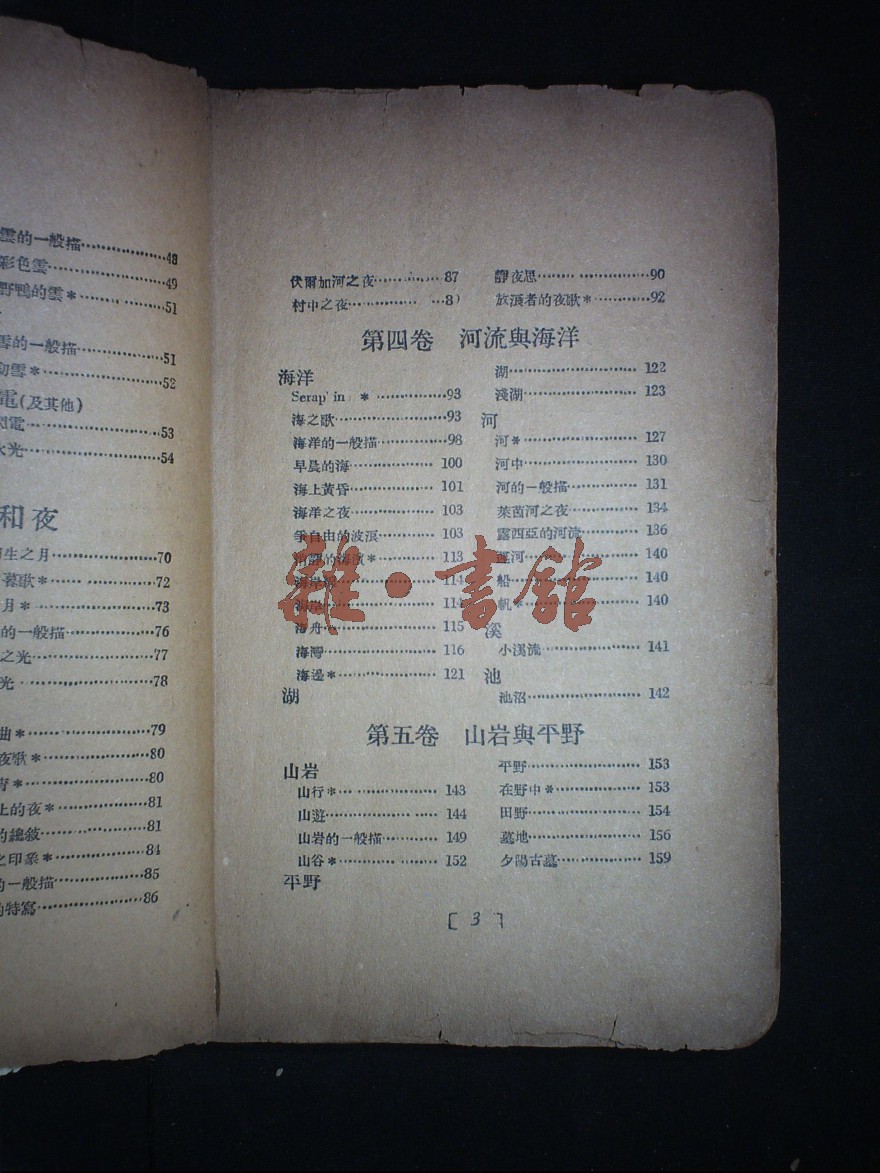 雲的一般描⋯⋯48
彩色雲⋯⋯49
野鴨的雲*⋯⋯51
雪的一般描⋯⋯51
初雪*⋯⋯52
電(及其他)
閃電⋯⋯53
水光⋯⋯54
和夜
生之月⋯⋯70
暮歌*⋯⋯72
月*⋯⋯73
的一般描⋯⋯76
之光⋯⋯77
光⋯⋯78
曲*⋯⋯79
夜歌*⋯⋯80
*⋯⋯80
上的夜*⋯⋯81
的總敍⋯⋯81
之印象*⋯⋯84
的一般描⋯⋯85
的特寫⋯⋯86
伏爾加河之夜⋯⋯87
村中之夜⋯⋯8
靜夜思⋯⋯90
放浪者的夜歌*⋯⋯92
第四卷 河流與海洋
海洋
Serap'in *⋯⋯93
海之歌⋯⋯93
海洋的一般描⋯⋯98
早晨的海⋯⋯100
海上黃昏⋯⋯101
海洋之夜⋯⋯103
自由的波浪⋯⋯103
的海濱*⋯⋯113
海岸⋯⋯114
海⋯⋯114
海舟⋯⋯115
海灣⋯⋯116
海邊*⋯⋯121
湖
湖⋯⋯122
淺湖⋯⋯123
河
河*⋯⋯127
河中⋯⋯130
河的一般描⋯⋯131
萊茵河之夜⋯⋯134
露西亞的河流⋯⋯136
運河⋯⋯140
船⋯⋯140
帆*⋯⋯140
溪
小溪流⋯⋯141
池
池沼⋯⋯142
第五卷 山岩與平野
山岩
山行*⋯⋯143
山遊⋯⋯144
山岩的一般描⋯⋯149
山谷*⋯⋯152
平野
平野⋯⋯153
在野中*⋯⋯153
田野⋯⋯154
墓地⋯⋯156
夕陽古墓⋯⋯159
[3]
雜·書館